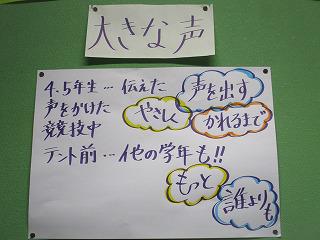 大きな声
4.5年生…伝えた
声を出す
声をかけた
やさしく
かれるまで
競技中
テント前…他の学年も!!
もっと
誰よりも